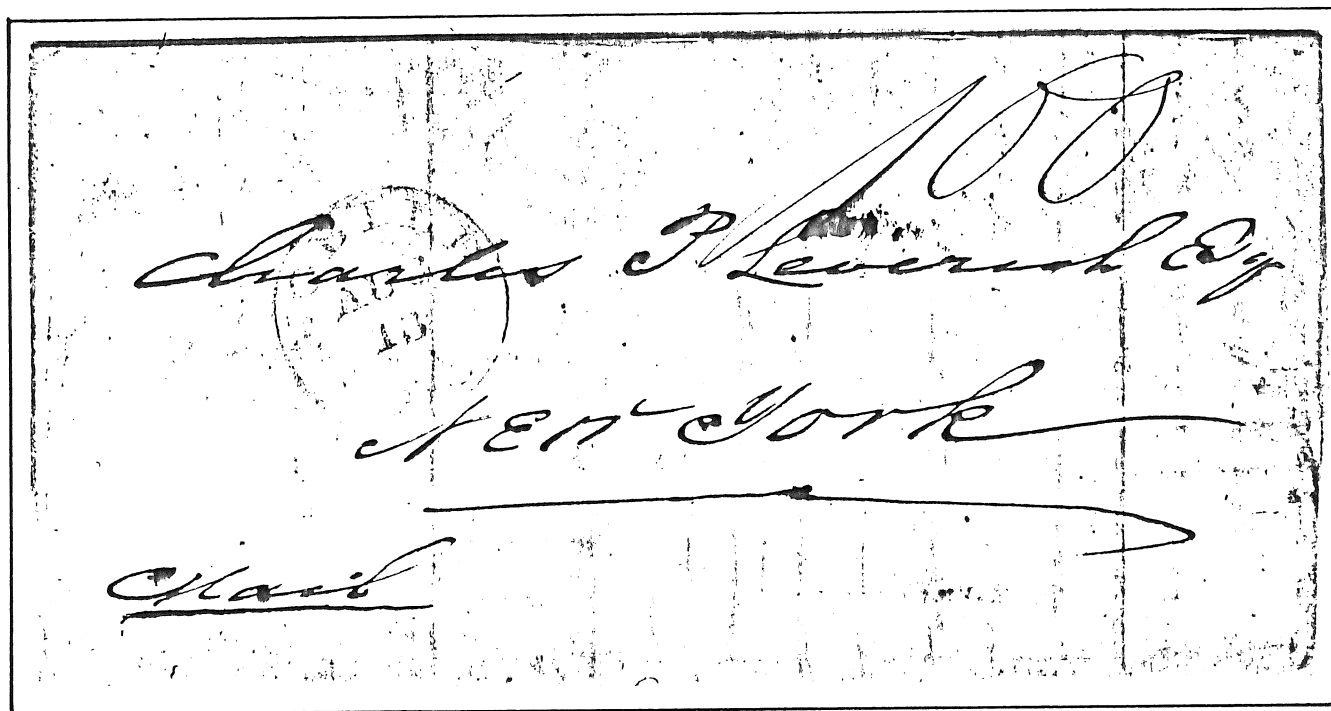 100
Charles P Leverich Esq
New York
Mail